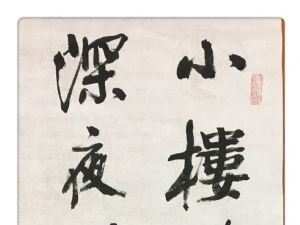 小樓
深夜